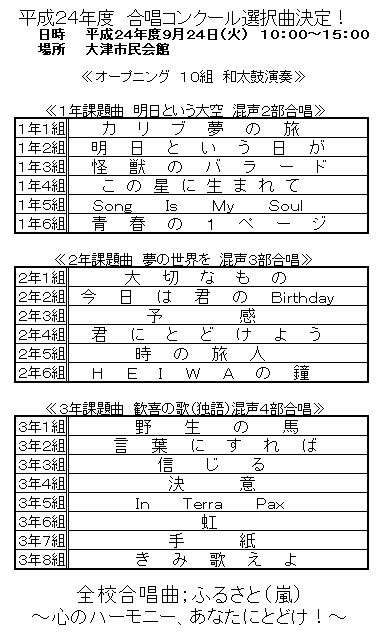 平成24年度 合唱コンクール選択曲決定！
日時 平成24年度9月24日(火) 10:00～15:00
場所 大津市民会館
≪オープニング 10組 和太鼓演奏≫
≪1年課題曲 明日という大空 混声2部合唱≫
1年1組 カリブ夢の旅
1年2組 明日という日が
1年3組 怪獣のバラード
1年4組 この星に生まれて
1年5組 Song Is My Soul
1年6組 青春の1ページ
≪2年課題曲 夢の世界を 混声3部合唱≫
2年1組 大切なもの
2年2組 今日は君のBirthday
2年3組 予感
2年4組 君にとどけよう
2年5組 時の旅人
2年6組 HEIWAの鐘
≪3年課題曲 歓喜の歌(独語)混声4部合唱≫
3年1組 野生の馬
3年2組 言葉にすれば
3年3組 信じる
3年4組 決意
3年5組 In Terra Pax
3年6組 虹
3年7組 手紙
3年8組 きみ歌えよ
全校合唱曲；ふるさと(嵐)
～心のハーモニー、あなたにとどけ！～